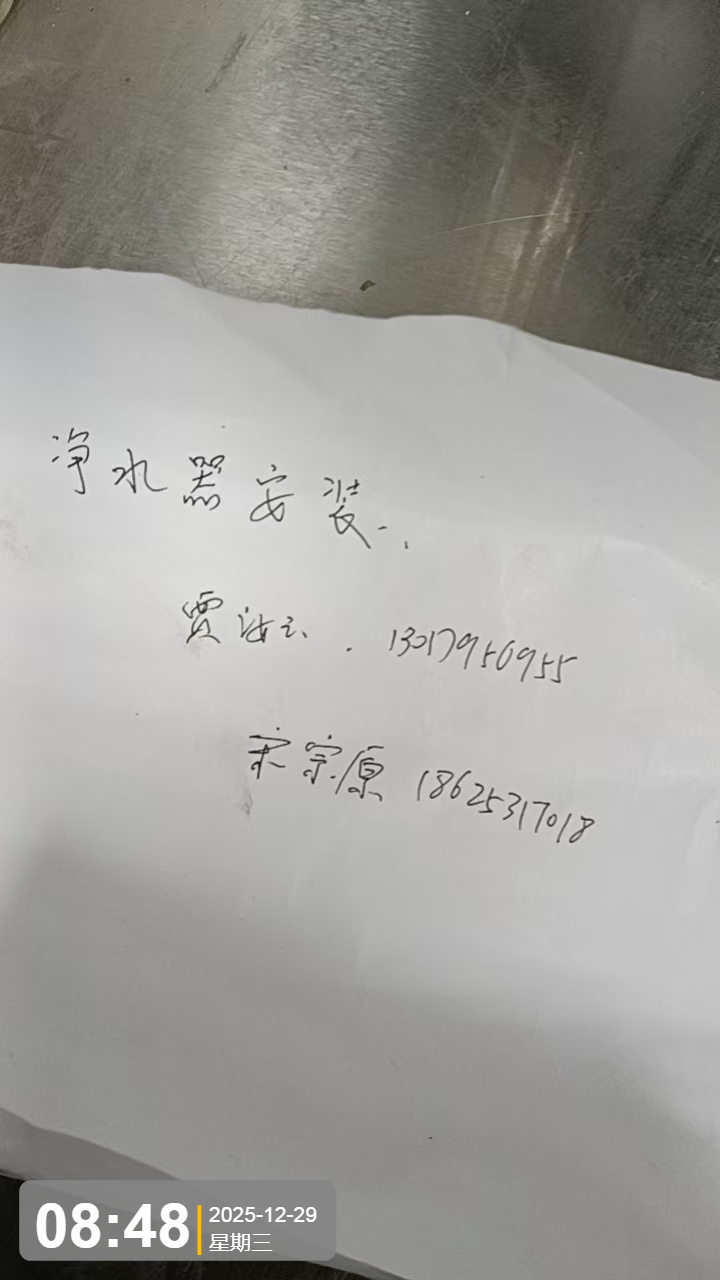 净水器安装..
贾汝玉.13017950955
宋宗原 18625317018
08:48
2025-12-29
星期三